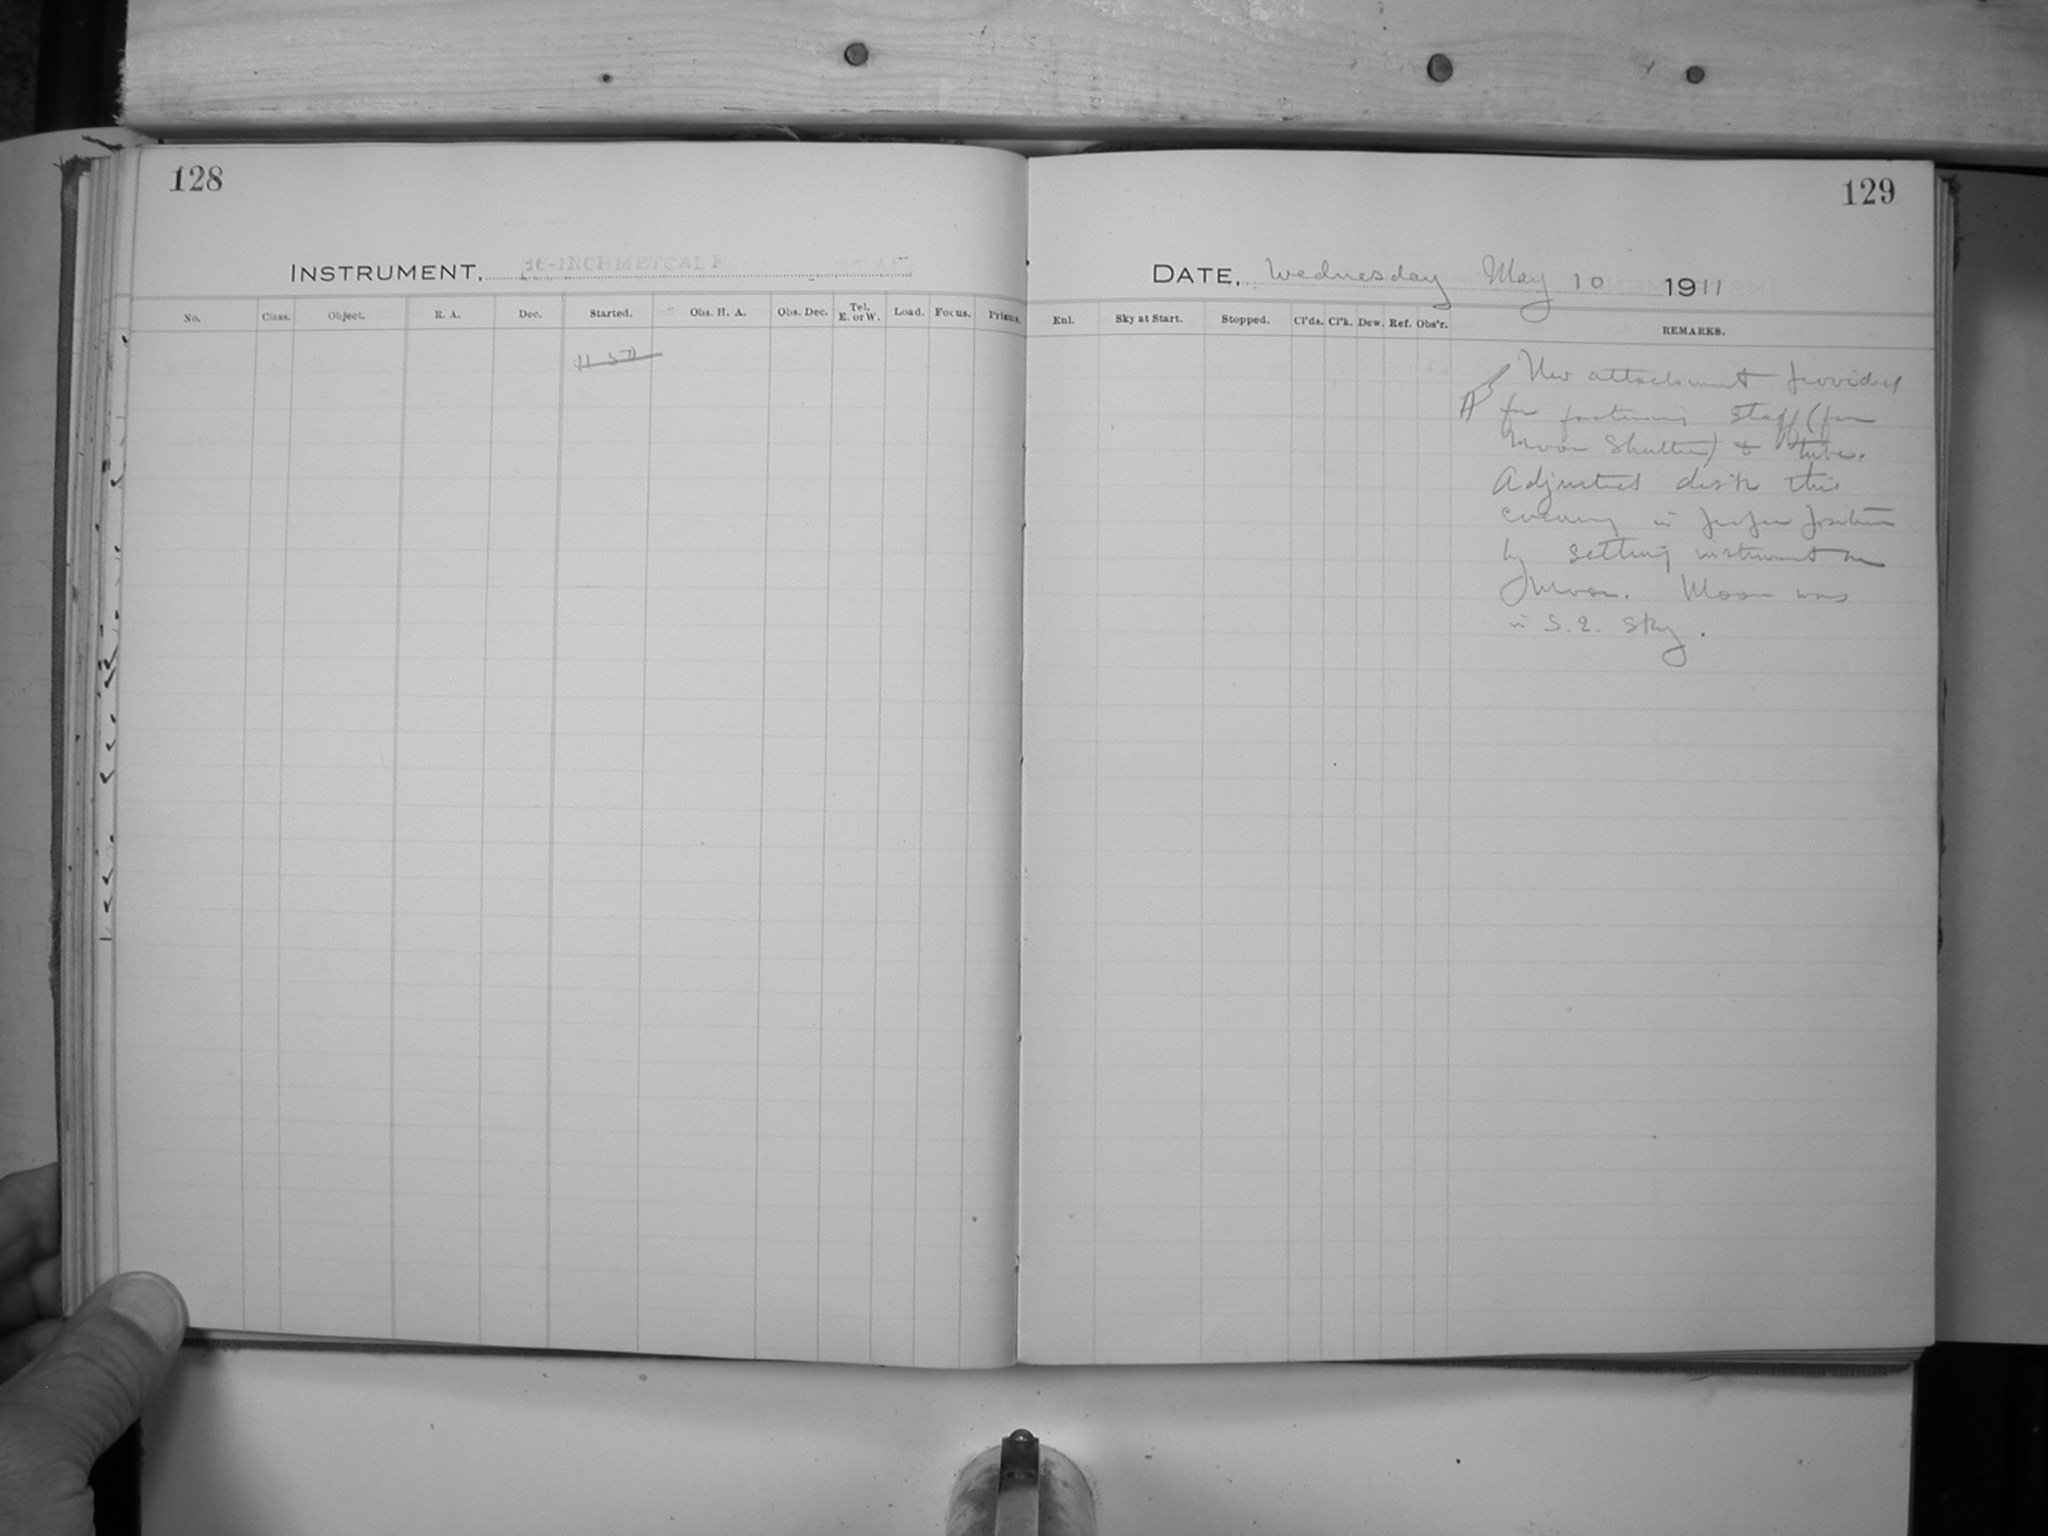 128
INSTRUMENT, 16-INCH METCALF
No. Class. Object. R. A. Dec. Started. Obs. H. A. Obs. Dec. Tel. E. or W. Load. Focus. Prisms.
11 57
129
DATE, Wednesday May 10 1911
Enl. Sky at Start. Stopped. Cl'ds. Cl'k. Dew. Ref. Obs'r. REMARKS.
New attachment provided
for fastening staff (for
Moon Shutter) to tube.
Adjusted disk this
evening in proper position
by setting instrument on
Moon. Moon was
in S.E. sky.